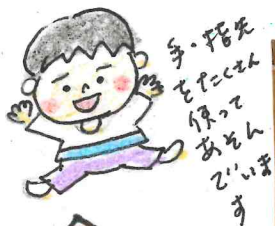 手・指先
をたくさん
使って
あそん
でいま
す